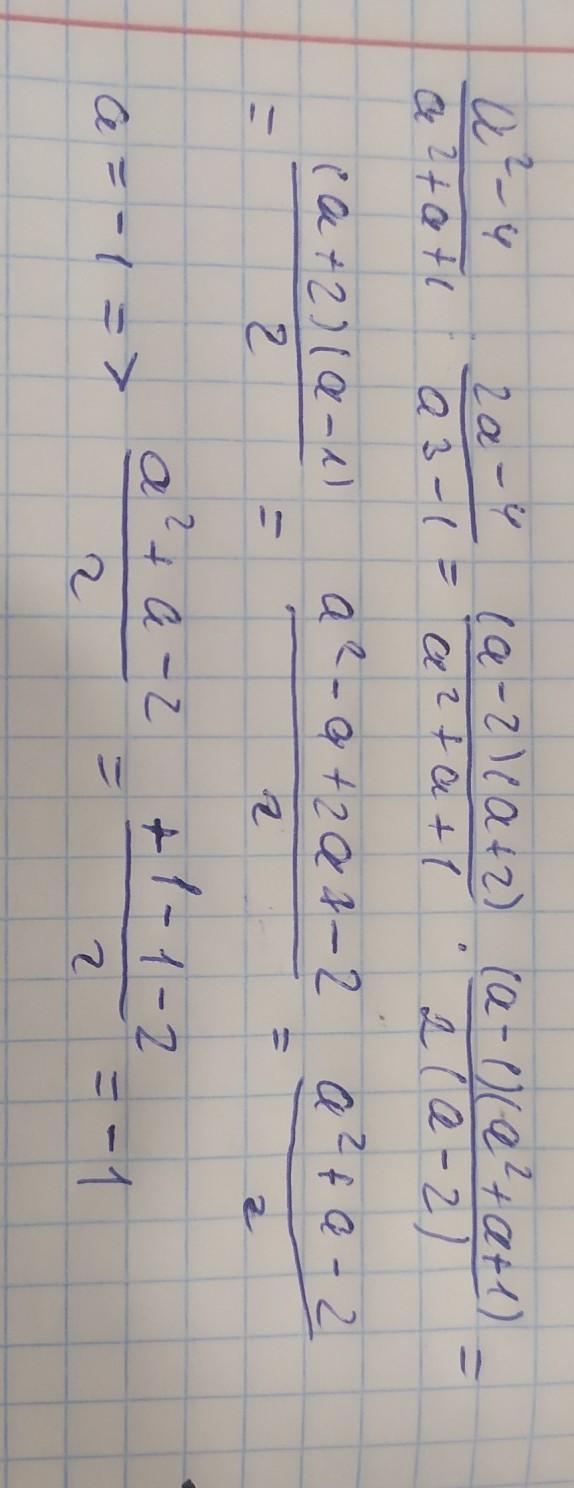 (a²-4)/(a²+a+1) : (2a-4)/(a³-1) = ((a-2)(a+2))/(a²+a+1) · ((a-1)(a²+a+1))/(2(a-2)) =
= ((a+2)(a-1))/2 = (a²-a+2a-2)/2 = (a²+a-2)/2
a = -1 => (a²+a-2)/2 = (+1-1-2)/2 = -1